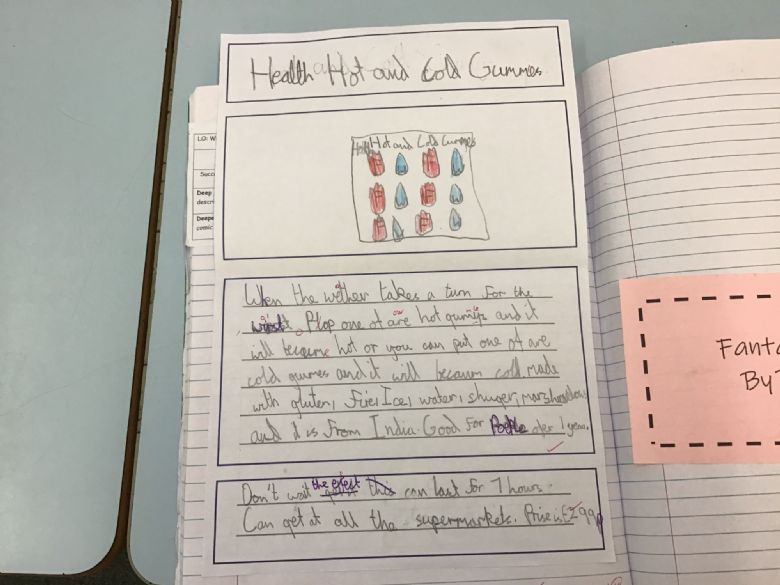 Health Hot and Cold Gummes
Hot and Cold Gummes
LO: W
Succ
Deep
descri
Deepe
comic
When the wether takes a turn for the
worst. Plop one of are hot gumys and it
will became hot or you can put one of are
cold gumes and it will becaum cold made
with gluten, Fire, Ice, water, shuger, marshmallows
and it is from India. Good for People oler 1 year.
Don't wait the efect can last for 7 hours.
Can get at all the supermarkets. Prise is £2.99p
Fanta
By